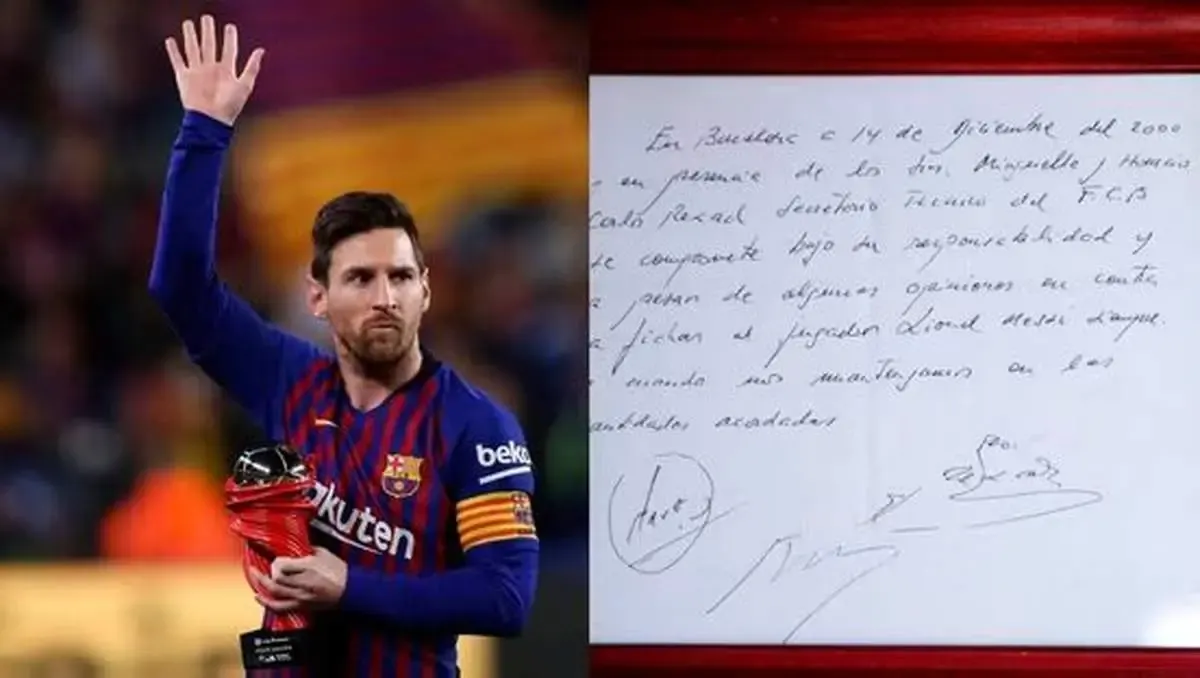 beko
akuten
En Barcelona a 14 de Diciembre del 2000
en presencia de los Sres. Minguella y Horacio
Carlos Rexach Secretario Técnico del F.C.B
se compromete bajo su responsabilidad y
a pesar de algunas opiniones en contra
a fichar al jugador Lionel Messi siempre
y cuando nos mantengamos en las
cantidades acordadas